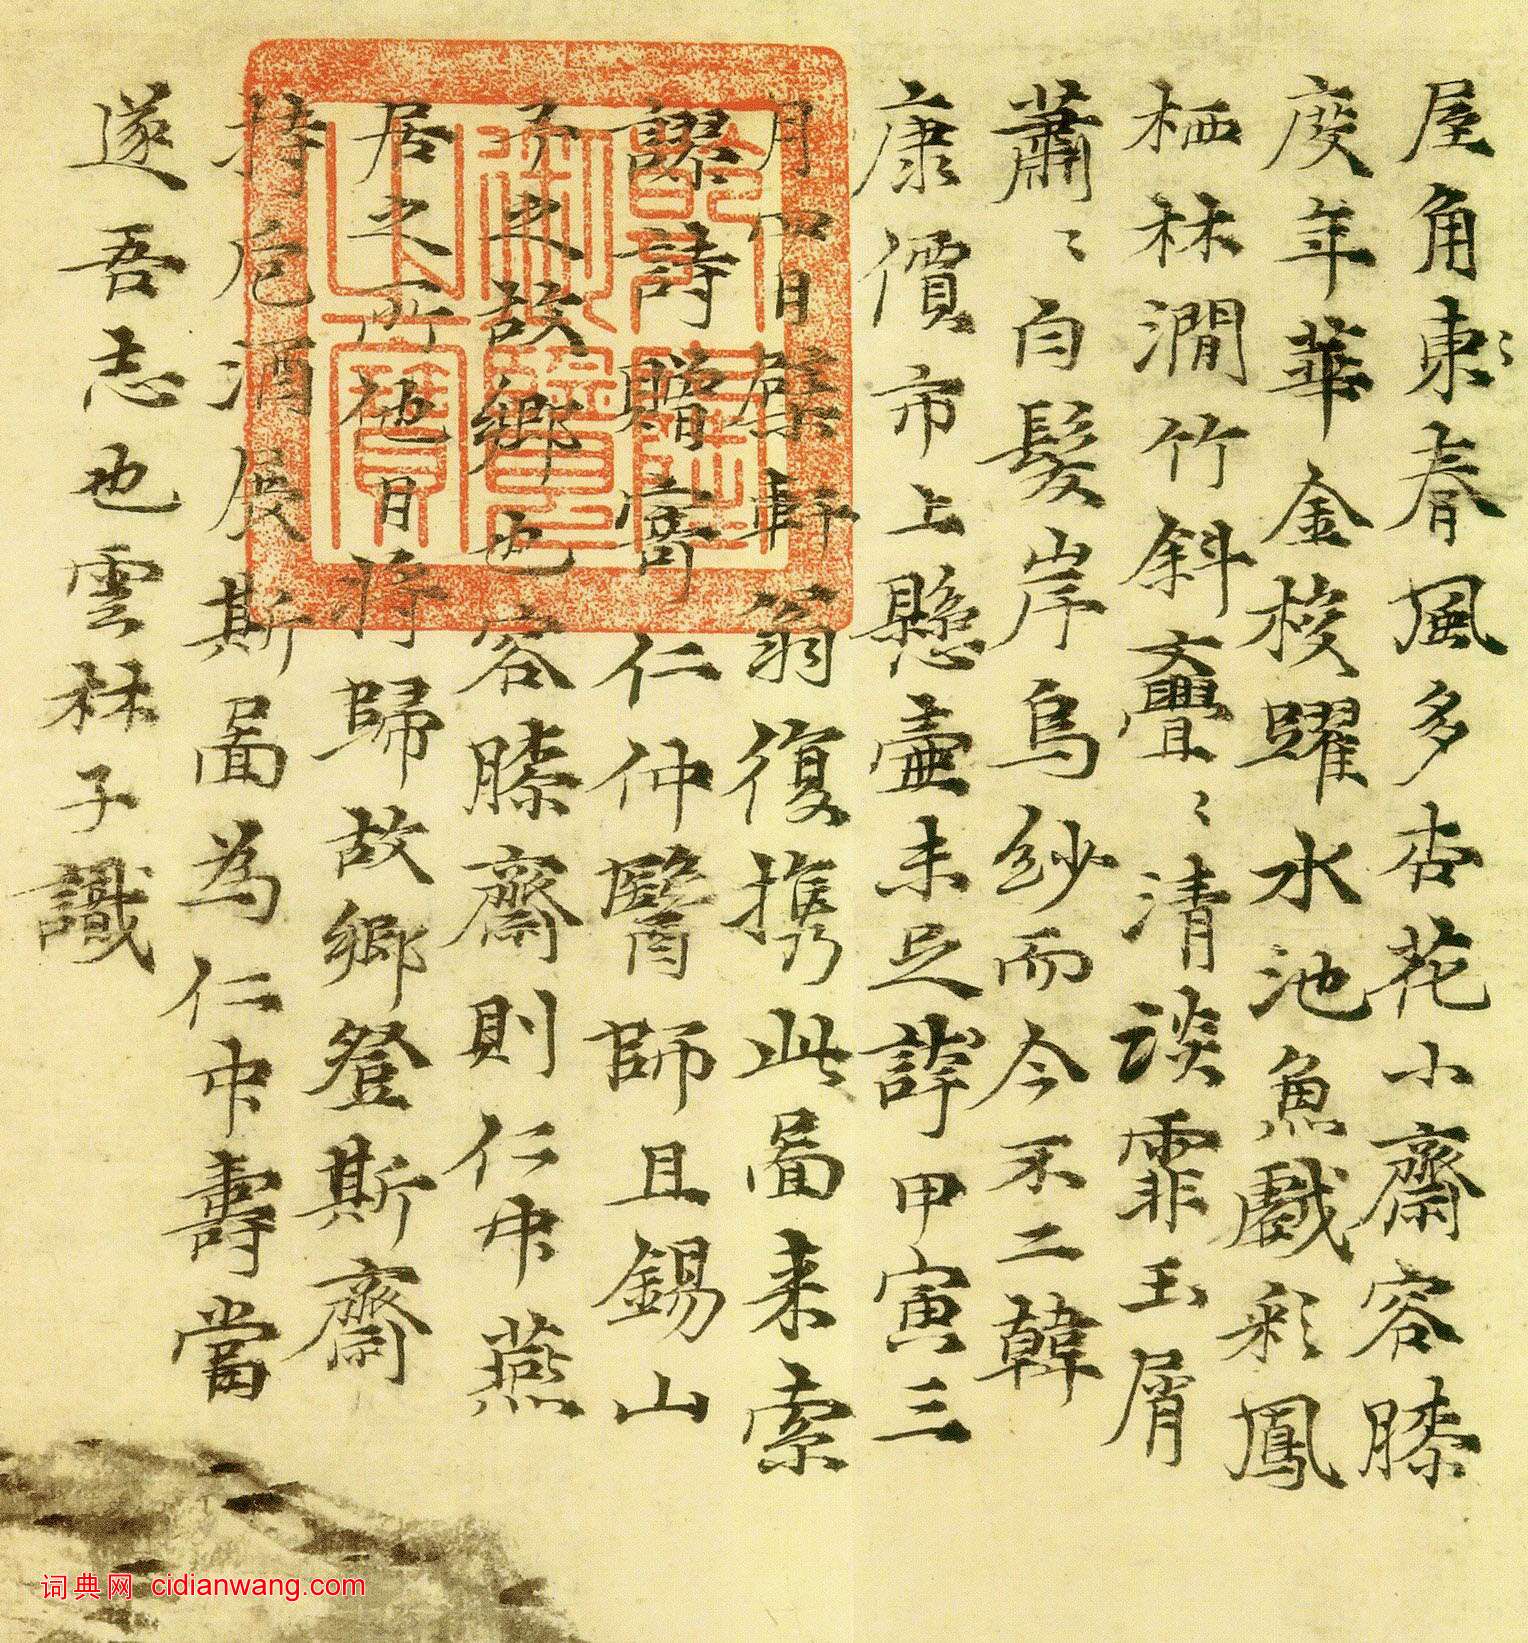 屋角東春風多杏花小齋容膝
度年華金梭躍水池魚戲彩鳳
栖林澗竹斜亹〻清談霏玉屑
蕭〻白髮岸烏紗而今不二韓
康價市上懸壺未足誇甲寅三
月四日檗軒翁復携此啚来索
謬詩贈寄仁仲醫師且錫山
予之故鄉也容膝齋則仁中燕
居之所他日將歸故鄉登斯齋
持卮酒展斯啚為仁中壽當
遂吾志也雲林子識
乾隆御覽之寶
词典网 cidianwang.com